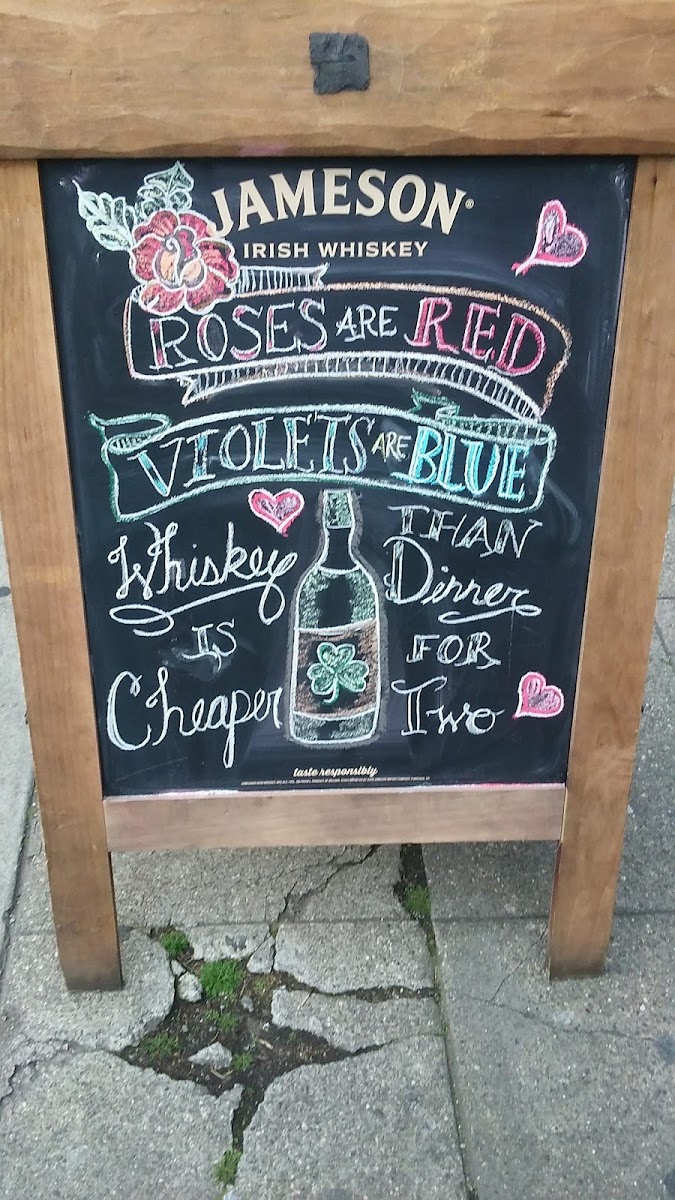 JAMESON®
IRISH WHISKEY
ROSES ARE RED
VIOLETS ARE BLUE
Whiskey
IS
Cheaper
THAN
Dinner
FOR
Two
taste responsibly